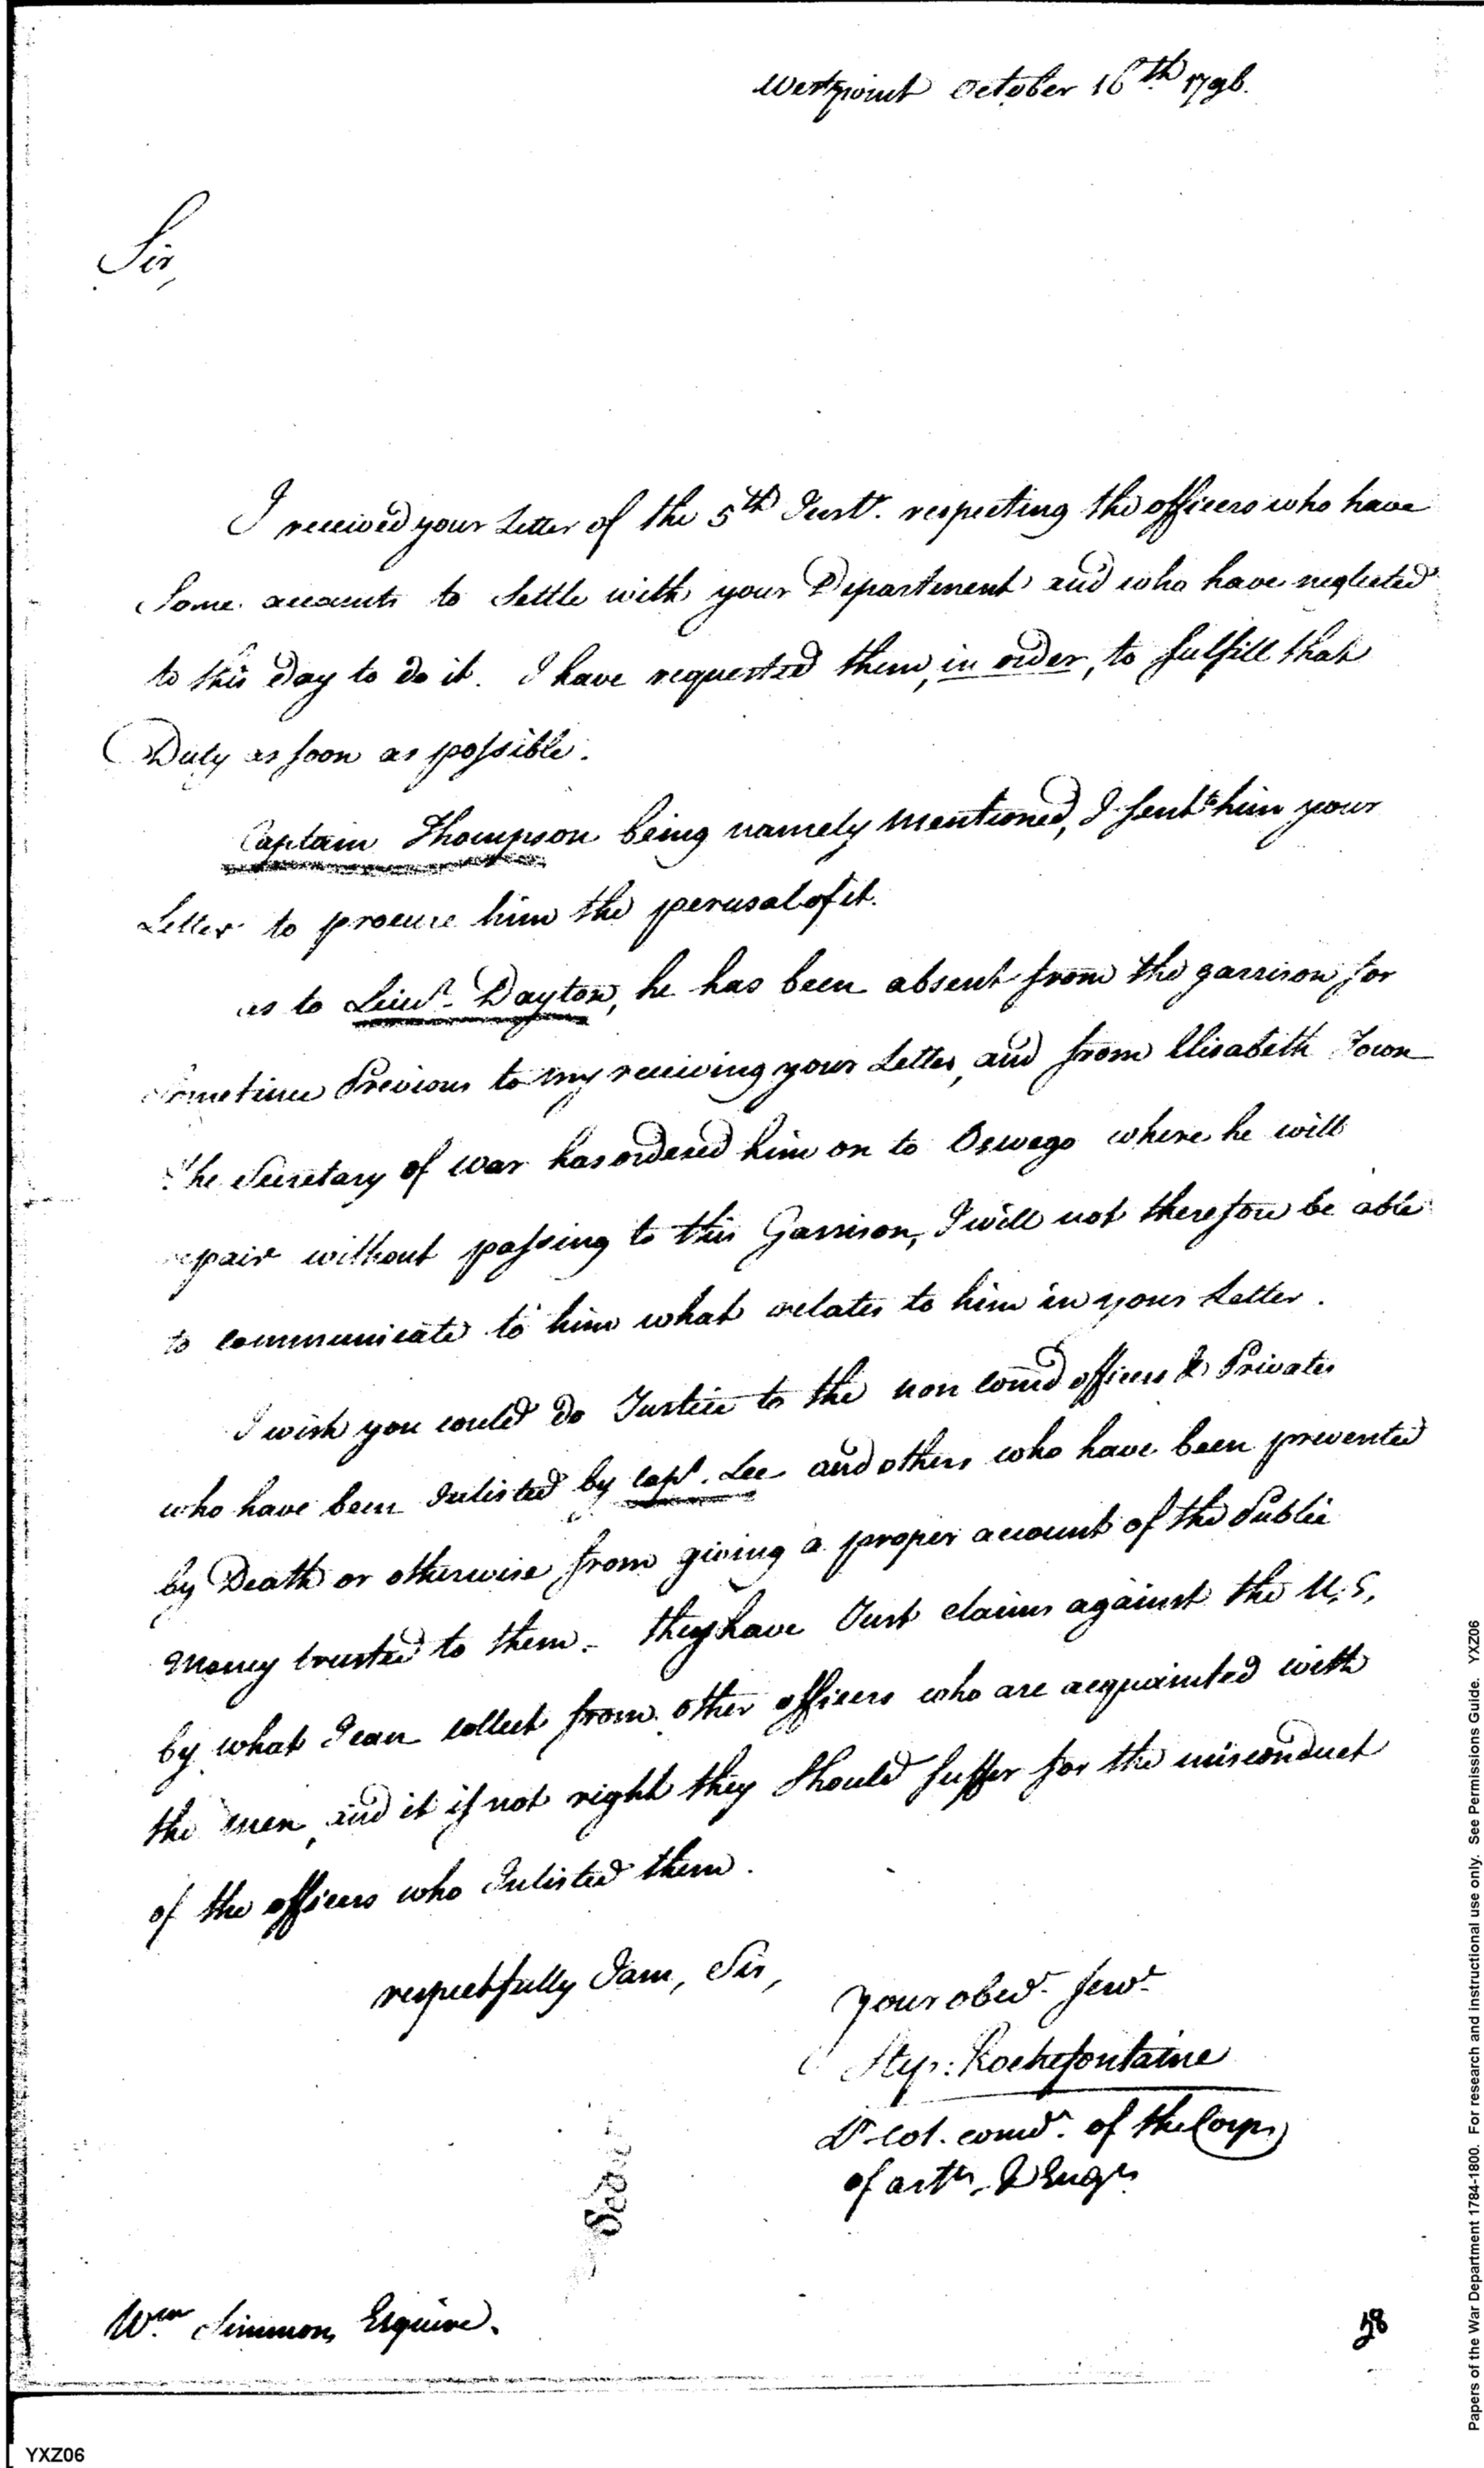 Westpoint October 16th 1796.
Sir,
I received your Letter of the 5th Inst. respecting the officers who have
Some accounts to Settle with your Department and who have neglected
to this Day to do it. I have requested them, in order, to fulfill that
Duty as soon as possible.
Captain Thompson being namely mentioned, I sent to him your
Letter to procure him the perusal of it.
as to Lieut. Dayton, he has been absent from the garrison for
Sometime Previous to my receiving your Letter, and from Elisabeth Town
The Secretary of war has ordered him on to Oswego where he will
repair without passing to this Garrison, I will not therefore be able
to communicate to him what relates to him in your Letter.
I wish you could do Justice to the non comd officers & Privates
who have been Inlisted by Capt. Lee and others who have been prevented
by Death or otherwise from giving a proper account of the Public
Money trusted to them. they have Just claims against the U.S.
by what I can collect from other officers who are acquainted with
the men, and it is not right they Should suffer for the misconduct
of the officers who Inlisted them.
respectfully I am, Sir,
your obedt. servt.
Step: Rochefontaine
Lt. Col. comdt. of the Corps
of artts. & Engrs.
Wm Simmons Esquire.
58
YXZ06
Papers of the War Department 1784-1800. For research and instructional use only. See Permissions Guide. YXZ06